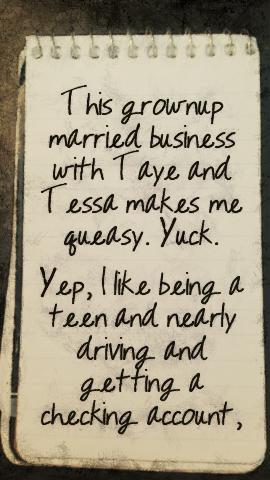 This grownup
married business
with Taye and
Tessa makes me
queasy. Yuck.
Yep, I like being a
teen and nearly
driving and
getting a
checking account,